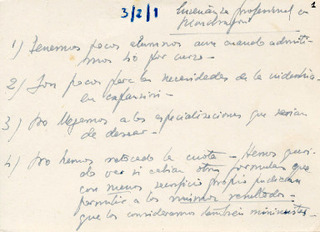 1
3/2/1 Enseñanza profesional en
Mondragon
1) Tenemos pocos alumnos aun cuando admiti-
mos 40 por curso.
2) Son pocos para las necesidades de la industria
en expansión.
3) No llegamos a las especializaciones que serían
de desear.
4) No hemos retocado la cuota. Hemos queri-
do ver si cabían otras fórmulas que
con menos sacrificio propio pudieran
permitir a los mismos resultados
que los consideramos también